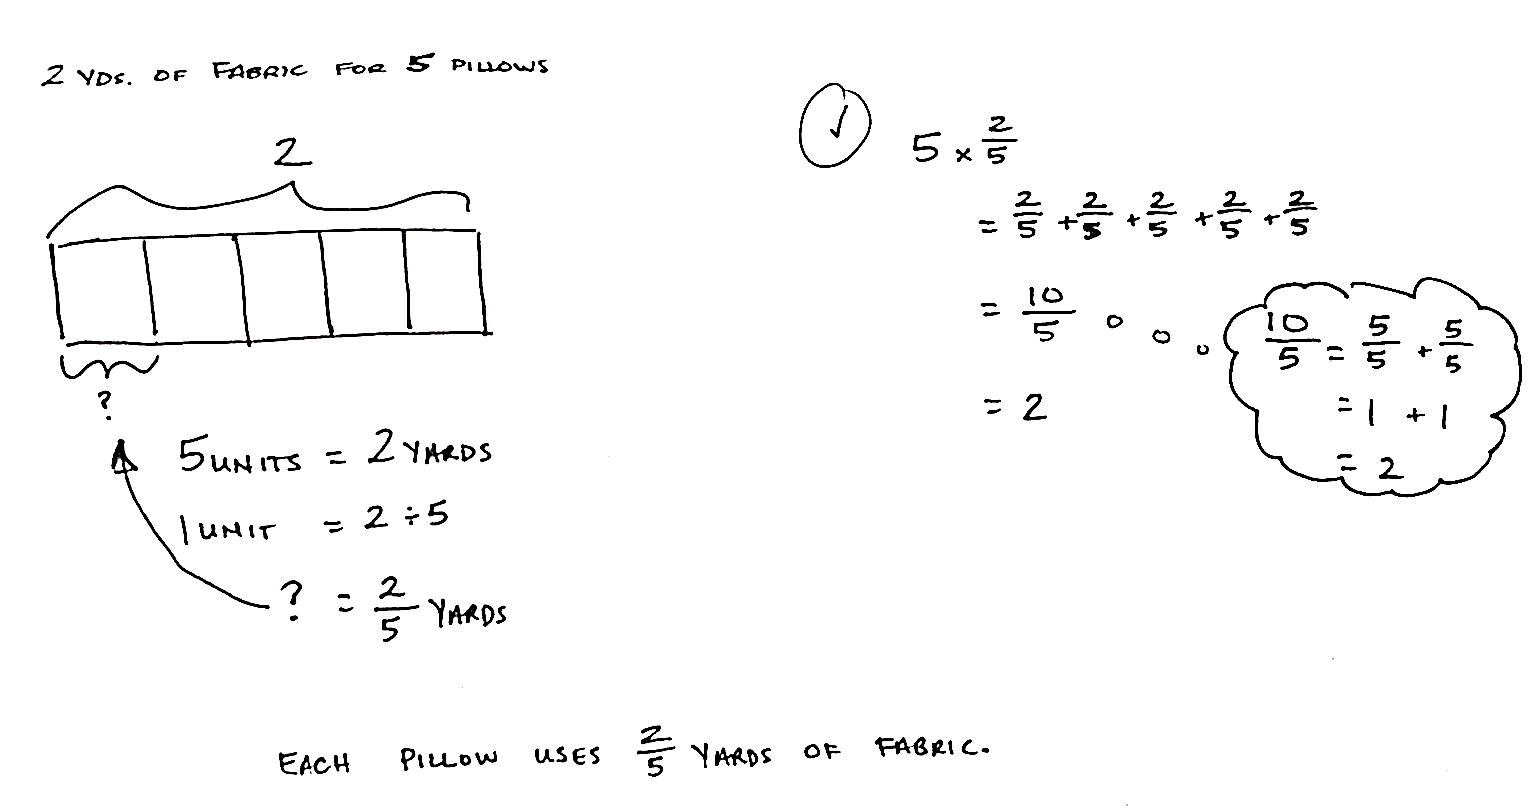 2 YDS. OF FABRIC FOR 5 PILLOWS
2
?
5 UNITS = 2 YARDS
1 UNIT = 2 ÷ 5
? = 2/5 YARDS
✓
5 × 2/5
= 2/5 + 2/5 + 2/5 + 2/5 + 2/5
= 10/5
= 2
10/5 = 5/5 + 5/5
= 1 + 1
= 2
EACH PILLOW USES 2/5 YARDS OF FABRIC.